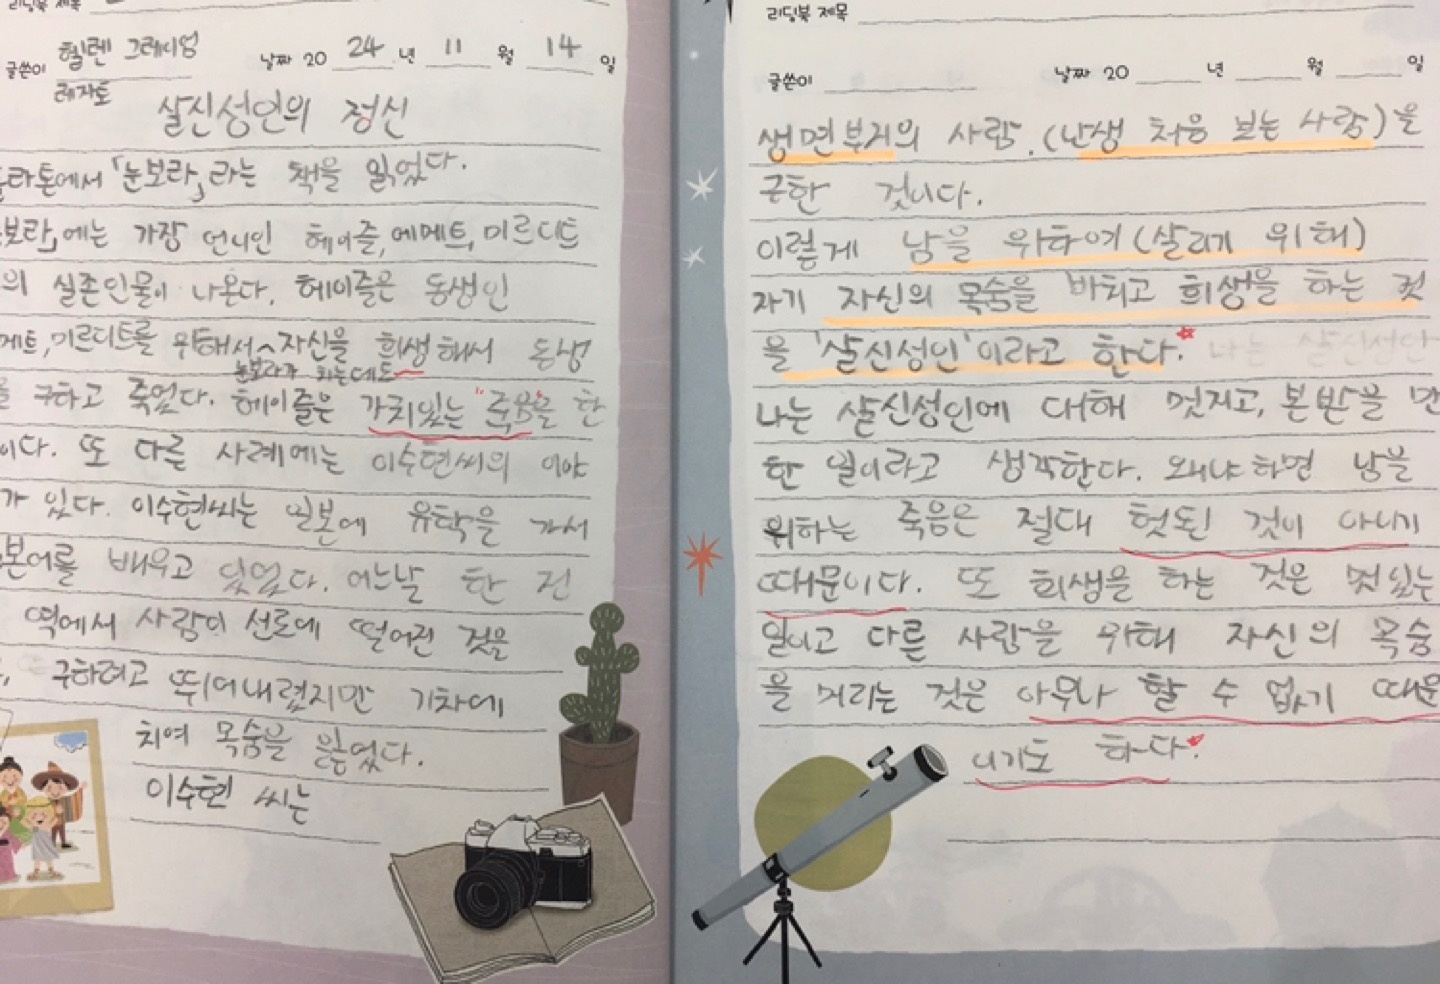 리딩북 제목
글쓴이 헬렌 그레이엄
레자토
날짜 20 24 년 11 월 14 일
살신성인의 정신
플라톤에서 「눈보라」라는 책을 읽었다.
보라」에는 가장 언니인 헤이즐, 에메트, 미르디트
의 실존인물이 나온다. 헤이즐은 동생인
메트, 미르디트를 위해서 자신을 희생해서 동생
눈보라가 치는데도
를 구하고 죽었다. 헤이즐은 가치있는 "죽음"을 한
이다. 또 다른 사례에는 이수현씨의 이야
가 있다. 이수현씨는 일본에 유학을 가서
본어를 배우고 있었다. 어느날 한 전
역에서 사람이 선로에 떨어진 것을
, 구하려고 뛰어내렸지만 기차에
치여 목숨을 잃었다.
이수현 씨는
리딩북 제목
글쓴이
날짜 20 년 월 일
생면부지의 사람.(난생 처음 보는 사람)을
구한 것이다.
이렇게 남을 위하여(살리기 위해)
자기 자신의 목숨을 바치고 희생을 하는 것
을 '살신성인'이라고 한다. 나는 살신성인
나는 살신성인에 대해 멋지고, 본받을 만
한 일이라고 생각한다. 왜냐하면 남을
위하는 죽음은 절대 헛된 것이 아니기
때문이다. 또 희생을 하는 것은 멋있는
일이고 다른 사람을 위해 자신의 목숨
을 버리는 것은 아무나 할 수 없기 때문
이기도 하다.